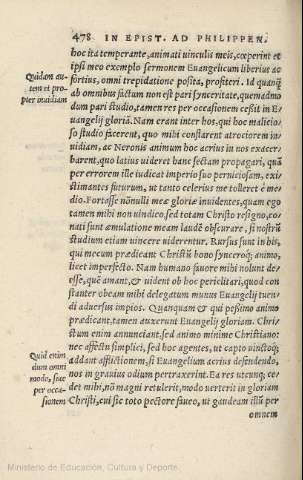 478 IN EPIST. AD PHILIPPEN.
hoc ita temperante, animati uinculis meis, cœperint et
ipsi meo exemplo sermonem Euangelicum liberius ac
fortius, omni trepidatione posita, profiteri. Id quanq̃
ab omnibus factum non est pari synceritate, quemadmo
dum pari studio, tamen res per occasionem cessit in E-
uangelij gloriã. Nam erant inter hos, qui hoc malicio-
so studio facerent, quo mihi conflarent atrociorem in-
uidiam, ac Neronis animum hoc acrius in nos exacer-
barent, quo latius uideret hanc sectam propagari, quã
per errorem ille iudicat imperio suo perniciosam, exi-
stimantes futurum, ut tanto celerius me tolleret è me-
dio. Fortasse nõnulli meæ gloriæ inuidentes, quam ego
tamen mihi non uindico, sed totam Christo resigno, co-
nati sunt æmulatione meam laudẽ obscurare, si nostrũ
studium etiam uincere uiderentur. Rursus sunt in his,
qui mecum prædicant Christũ bono synceroq́; animo,
licet imperfecto. Nam humano fauore mihi nolunt de-
esse, quẽ amant, & uident ob hoc periclitari, quod con
stanter obeam mihi delegatum munus Euangelij tuen-
di aduersus impios. Quanquam & qui pessimo animo
prædicant, tamen auxerunt Euangelij gloriam. Chri-
stum enim annunciant, sed animo minime Christiano:
nec affectu simplici, sed hoc agentes, ut capto uinctoq́;
addant afflictionem, si Euangelium acrius defendendo,
nos in grauius odium pertraxerint. Ea res utcunq; ce-
det mihi, nõ magni retulerit, modo uerterit in gloriam
Christi, cui sic toto pectore faueo, ut gaudeam illũ per
omnem
Quidam au-
tem et pro-
pter inuidiam
Quid enim
dum omni
modo, siue
per occa-
sionem
Ministerio de Educación, Cultura y Deporte